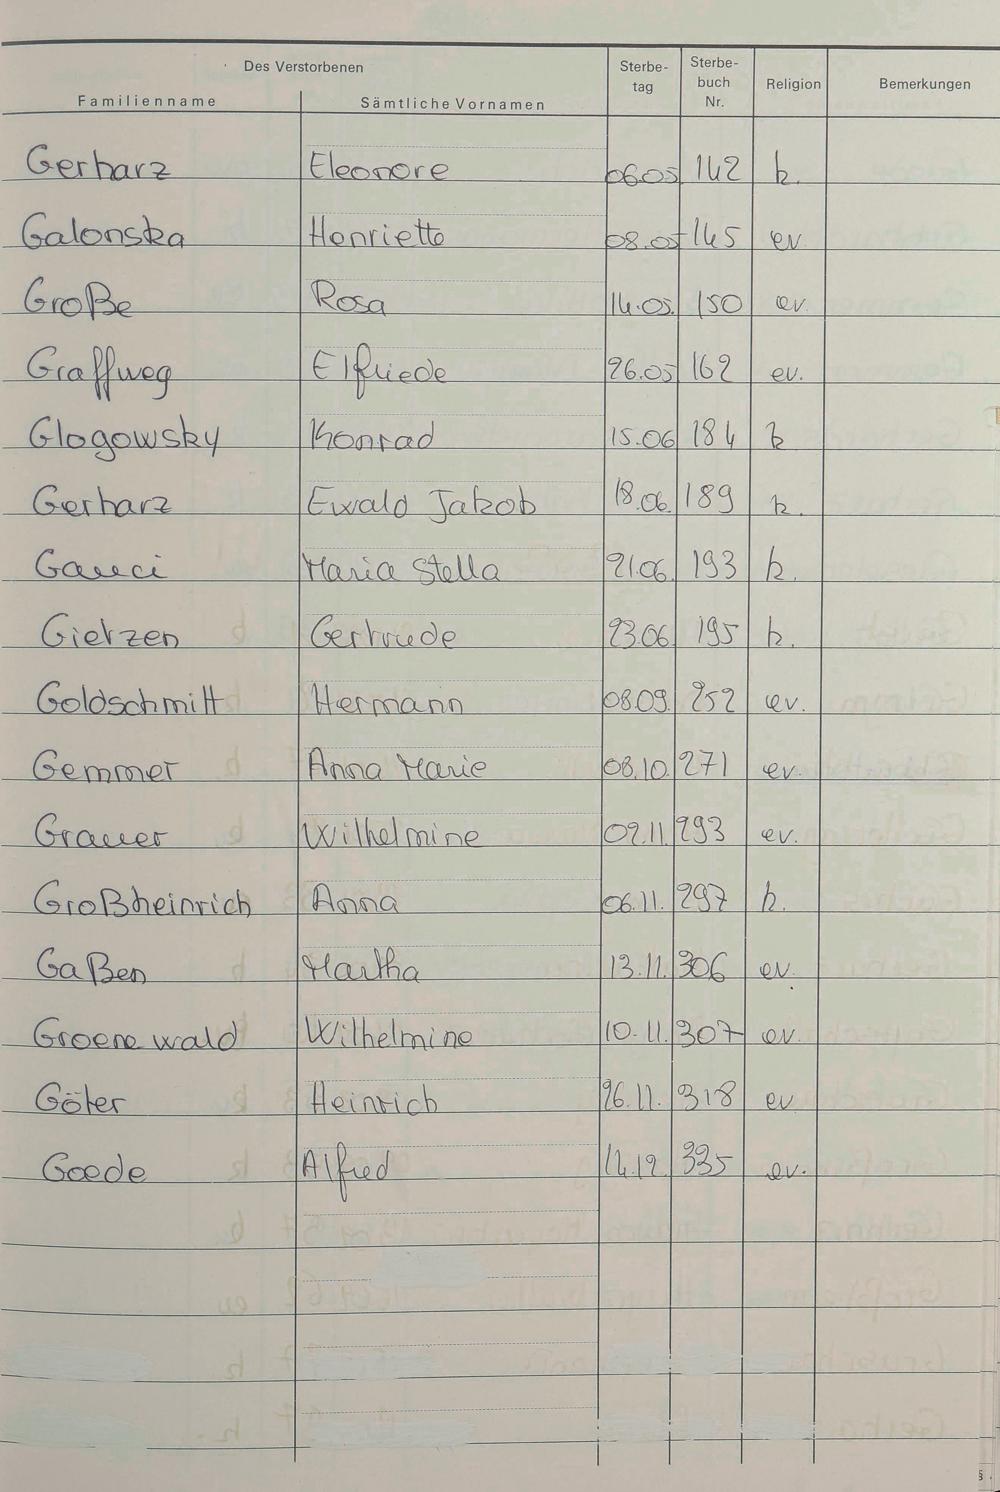 Des Verstorbenen Sterbe- Sterbe-
tag buch Religion Bemerkungen
Familienname Sämtliche Vornamen Nr.
Gerharz Eleonore 06.05 142 k.
Galonska Henriette 08.05 145 ev.
Große Rosa 14.05. 150 ev.
Graffweg Elfriede 26.05 162 ev.
Glogowsky Konrad 15.06 184 k
Gerharz Ewald Jakob 18.06. 189 k.
Gauci Maria Stella 21.06. 193 k.
Gietzen Gertrude 23.06. 195 k.
Goldschmitt Hermann 08.09. 252 ev.
Gemmer Anna Marie 08.10. 271 ev.
Grauer Wilhelmine 02.11. 293 ev.
Großheinrich Anna 06.11. 297 k.
Gaßen Martha 13.11. 306 ev.
Groenewald Wilhelmine 10.11. 307 ev.
Göter Heinrich 26.11. 318 ev
Goede Alfred 14.12. 335 ev.